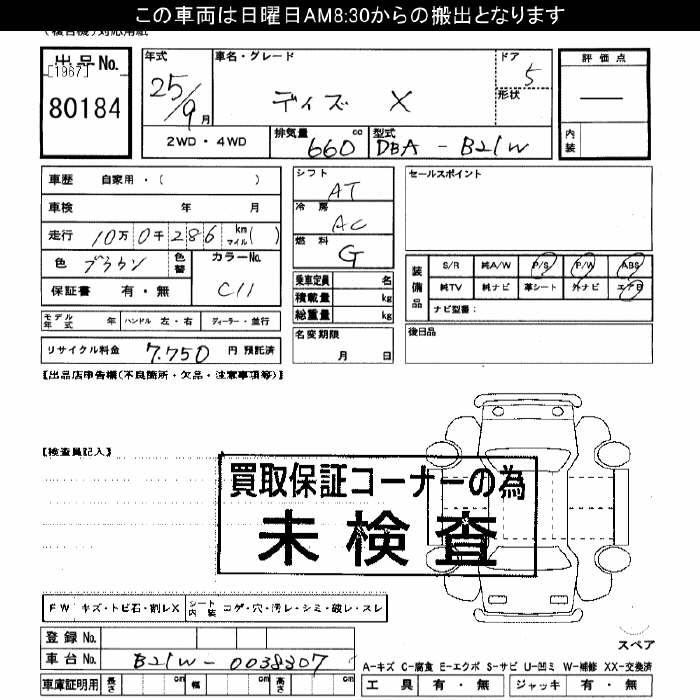 この車両は日曜日AM8:30からの搬出となります
(複合機)対応用紙
出品No.
[1967]
80184
年式 25/9月
車名・グレード デイズ X
ドア 5
形状
評価点
―
内装
2WD・4WD
排気量 660 cc
型式 DBA-B21W
車歴 自家用・( )
車検 年 月
走行 10万0千286 km マイル( )
色 ブラウン 色替
カラーNo. C11
保証書 有・無
シフト AT
冷房 AC
燃料 G
乗車定員 名
積載量 kg
総重量 kg
セールスポイント
装備品 S/R 純A/W P/S P/W ABS
純TV 純ナビ 革シート 外ナビ エアB
ナビ型番:
モデル年式 年 ハンドル 左・右 ディーラー・並行
名変期限 月 日
後日品
リサイクル料金 7.750 円 預託済
【出品店申告欄(不良箇所・欠品・注意事項等)】
【検査員記入】
買取保証コーナーの為
未検査
FW キズ・トビ石・割レX シート内装 コゲ・穴・汚レ・シミ・破レ・スレ
登録No.
車台No. B21W-0038307
スペア
A-キズ C-腐食 E-エクボ S-サビ U-凹ミ W-補修 XX-交換済
車庫証明用 長さ cm 幅 cm 高さ cm
工具 有・無 ジャッキ 有・無